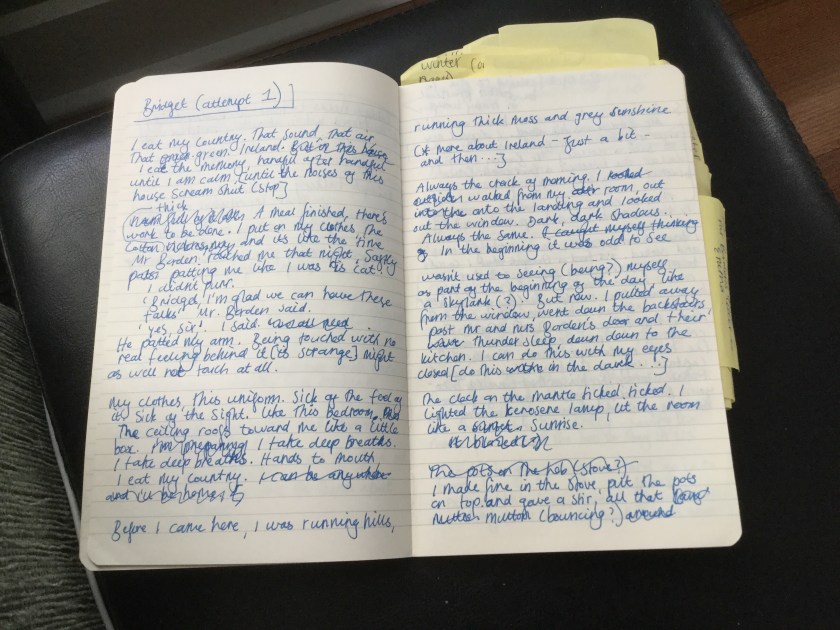 Winter (a
Bridget (attempt 1)]
I eat my country. That sound, that air
That green-green. Ireland. But in this house
I eat the memory, handful after handful
until I am calm, until the noises of this
house scream shut [stop]
thick
A meal finished, there's
work to be done. I put on my clothes, the
cotton and its like the time
Mr Borden touched me that night. Saggy
patting me like I was his cat.
I didn't purr.
'Bridget, I'm glad we can have these
talks' Mr. Borden said.
'Yes, sir.' I said.
He patted my arm. Being touched with no
real feeling behind it [its strange] might
as well not touch at all.
My clothes, this uniform. Sick of the feel of
it, Sick of the sight. Like this bedroom.
The ceiling roofs toward me like a little
box. I'm preparing I take deep breaths.
I take deep breaths. Hands to mouth
I eat my country. I can be anywhere
and I'll be
Before I came here, I was running hills,
running thick moss and grey sunshine
[* more about Ireland - Just a bit -
and then...]
Always the crack of morning. I looked
outside walked from my room, out
into the onto the landing and looked
out the window. Dark, dark shadows.
Always the same. I caught myself thinking
In the beginning it was odd to see
wasn't used to seeing (being?) myself
as part of the beginning of the day like
a skylark (?). But now. I pulled away
from the window, went down the backstairs,
past Mr and Mrs Borden's door and their
thunder sleep, down down to the
kitchen. I can do this with my eyes
closed [do this in the dark...]
The clock on the mantle ticked ticked. I
lighted the kerosene lamp, let the room
like a sunrise.
The pots on the hob (stove?)
I made fire in the stove, put the pots
on top and gave a stir, all that
mutton (bouncing?) around